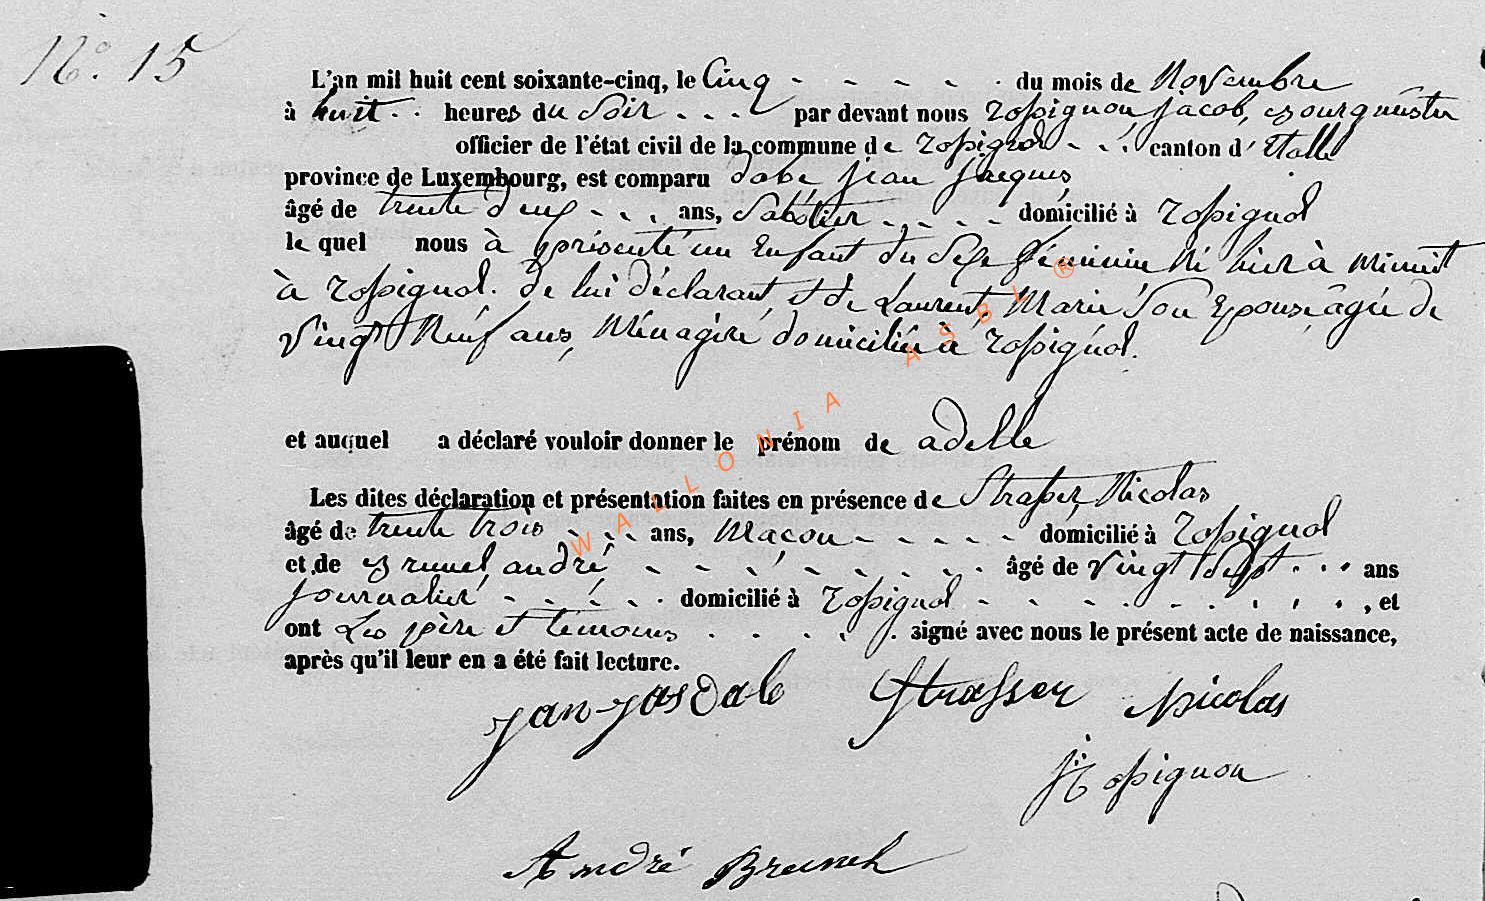 N° 15
L'an mil huit cent soixante-cinq, le Cinq - - - - . du mois de Novembre
à huit . . heures du Soir . . . par devant nous Rossignon Jacob, Bourgmestre
officier de l'état civil de la commune de Rossignol - - . canton d' Etalle
province de Luxembourg, est comparu Dabe Jean Jacques
âgé de trente deux - - . ans, Sabotier - - - - domicilié à Rossignol
le quel nous à présenté un Enfant du Sexe féminin Né hier à minuit
à Rossignol. de lui déclarant et de Laurent, Marie Son Epouse, âgée de
Vingt Neuf ans, Ménagère domiciliée à Rossignol.
et auquel a déclaré vouloir donner le prénom de adelle
Les dites déclaration et présentation faites en présence de Strasser, Nicolas
âgé de trente trois - - - ans, Maçon - - - - - domicilié à Rossignol
et de Brunel, andré - - - - - - - - - âgé de Vingt Sept . . . ans
Journalier - - - - . domicilié à Rossignol - - - - - - - - - , et
ont Les père et témoins . . . . . signé avec nous le présent acte de naissance,
après qu'il leur en a été fait lecture.
Jan Jas Dabe Strasser Nicolas
J Rossignon
André Brunel
WALLONIA ASBL ®